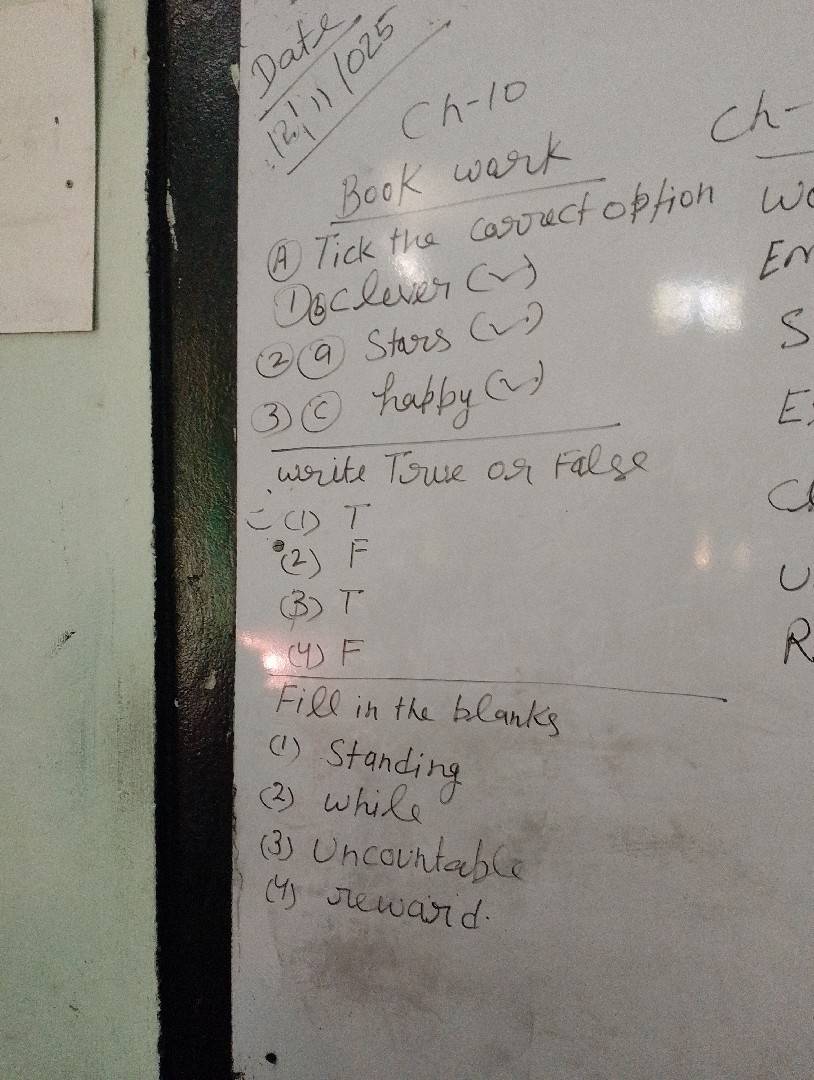 Date
12/11/025
Ch-10
Book wark
(A) Tick the corruct option
1) (b) Clever (✓)
(2) (a) Stars (✓)
(3) (c) happy (✓)
write True or False
(1) T
(2) F
(3) T
(4) F
Fill in the blanks
(1) Standing
(2) while
(3) Uncountable
(4) reward.
Ch-
Wo
En
S
E
Cl
U
R